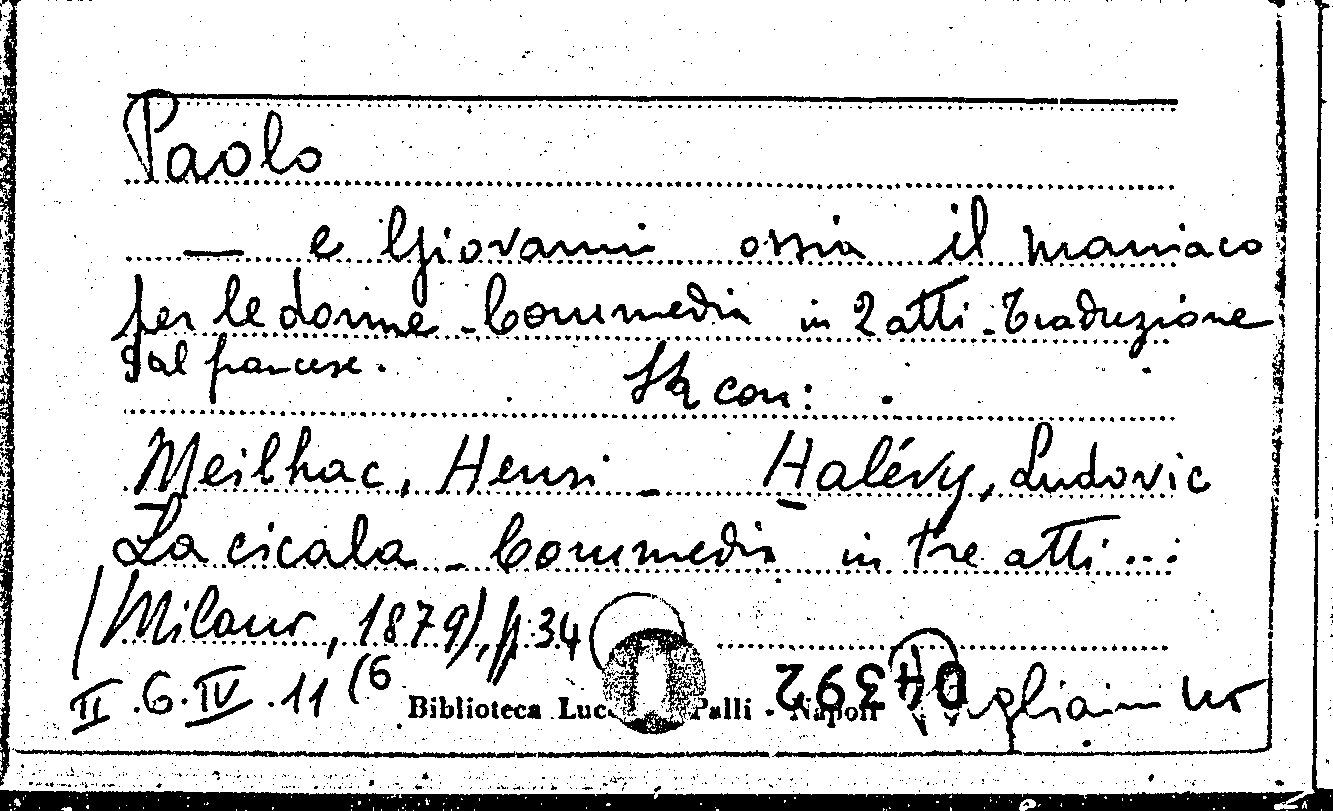 Paolo
— e Giovanni ossia il maniaco
per le donne - Commedia in 2 atti - Traduzione
dal francese.
con:
Meilhac, Henri - Halévy, Ludovic
La cicala - Commedia in tre atti...
(Milano, 1879), p. 34
II.6.IV.11(6
Biblioteca Lucc Palli - Napoli
04392